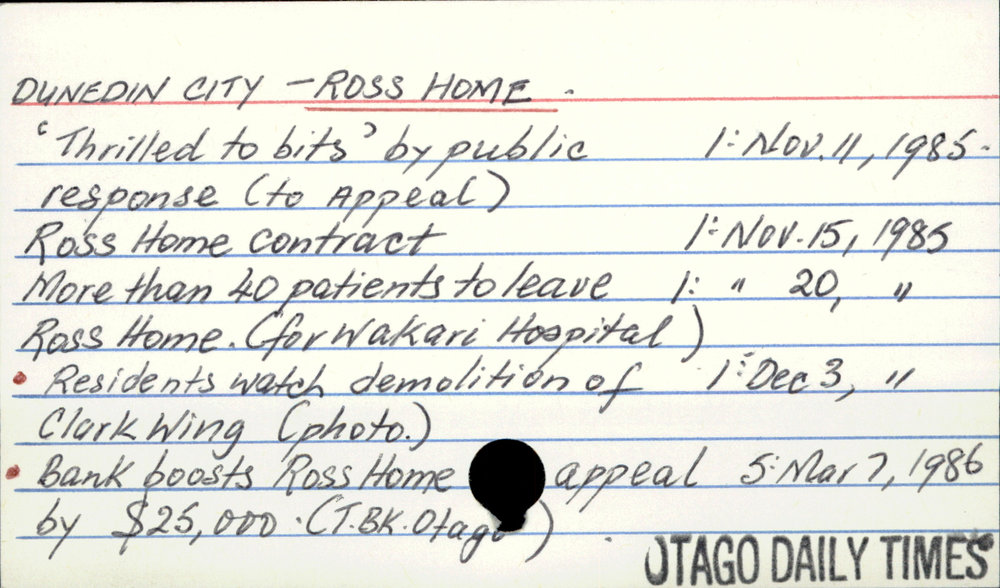 DUNEDIN CITY - ROSS HOME.
'Thrilled to bits' by public 1: Nov. 11, 1985.
response (to Appeal)
Ross Home contract 1: Nov. 15, 1985
More than 40 patients to leave 1: " 20, "
Ross Home. (for Wakari Hospital)
• Residents watch demolition of 1: Dec 3, "
Clark Wing (photo.)
• Bank boosts Ross Home appeal 5: Mar 7, 1986
by $25,000. (T.BK. Otago)
OTAGO DAILY TIMES